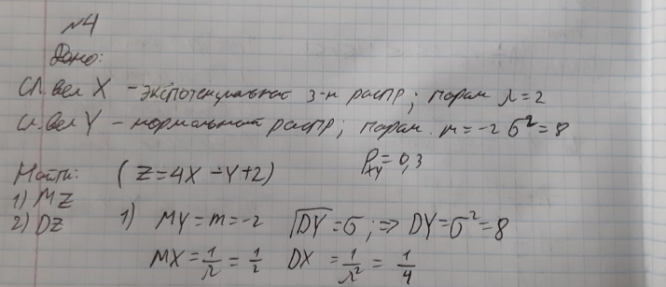 №4
Дано:
Сл. вел X - экспотенциальное з-н распр; парам λ=2
сл. вел Y - нормальный распр; парам. m=-2 σ²=8
Найти: (Z=4X-Y+2) ρxy=0,3
1) MZ
2) DZ 1) MY=m=-2 √DY=σ; ⇒ DY=σ²=8
MX=1/λ=1/2 DX=1/λ²=1/4